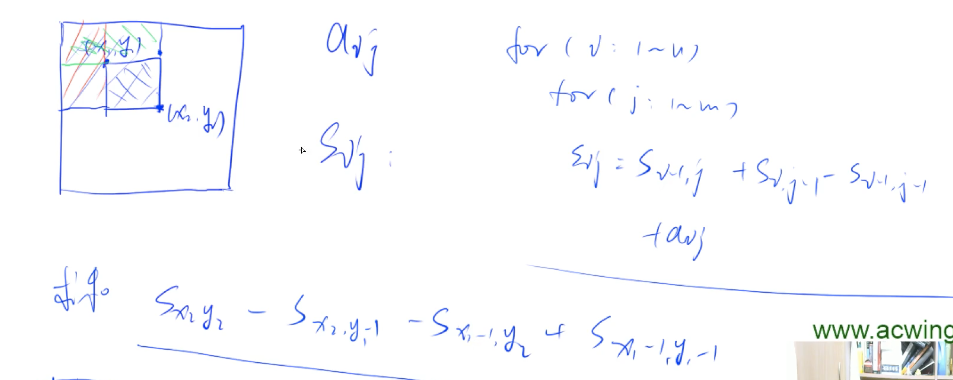 (x₁, y₁)
(x₂, y₂)
aᵢⱼ
Sᵢⱼ :
for ( i : 1~n)
for ( j : 1~m)
Sᵢⱼ = Sᵢ₋₁,ⱼ + Sᵢ,ⱼ₋₁ - Sᵢ₋₁,ⱼ₋₁
+ aᵢⱼ
S_{x₂y₂} - S_{x₂,y₁-1} - S_{x₁-1,y₂} + S_{x₁-1,y₁-1}
www.acwing